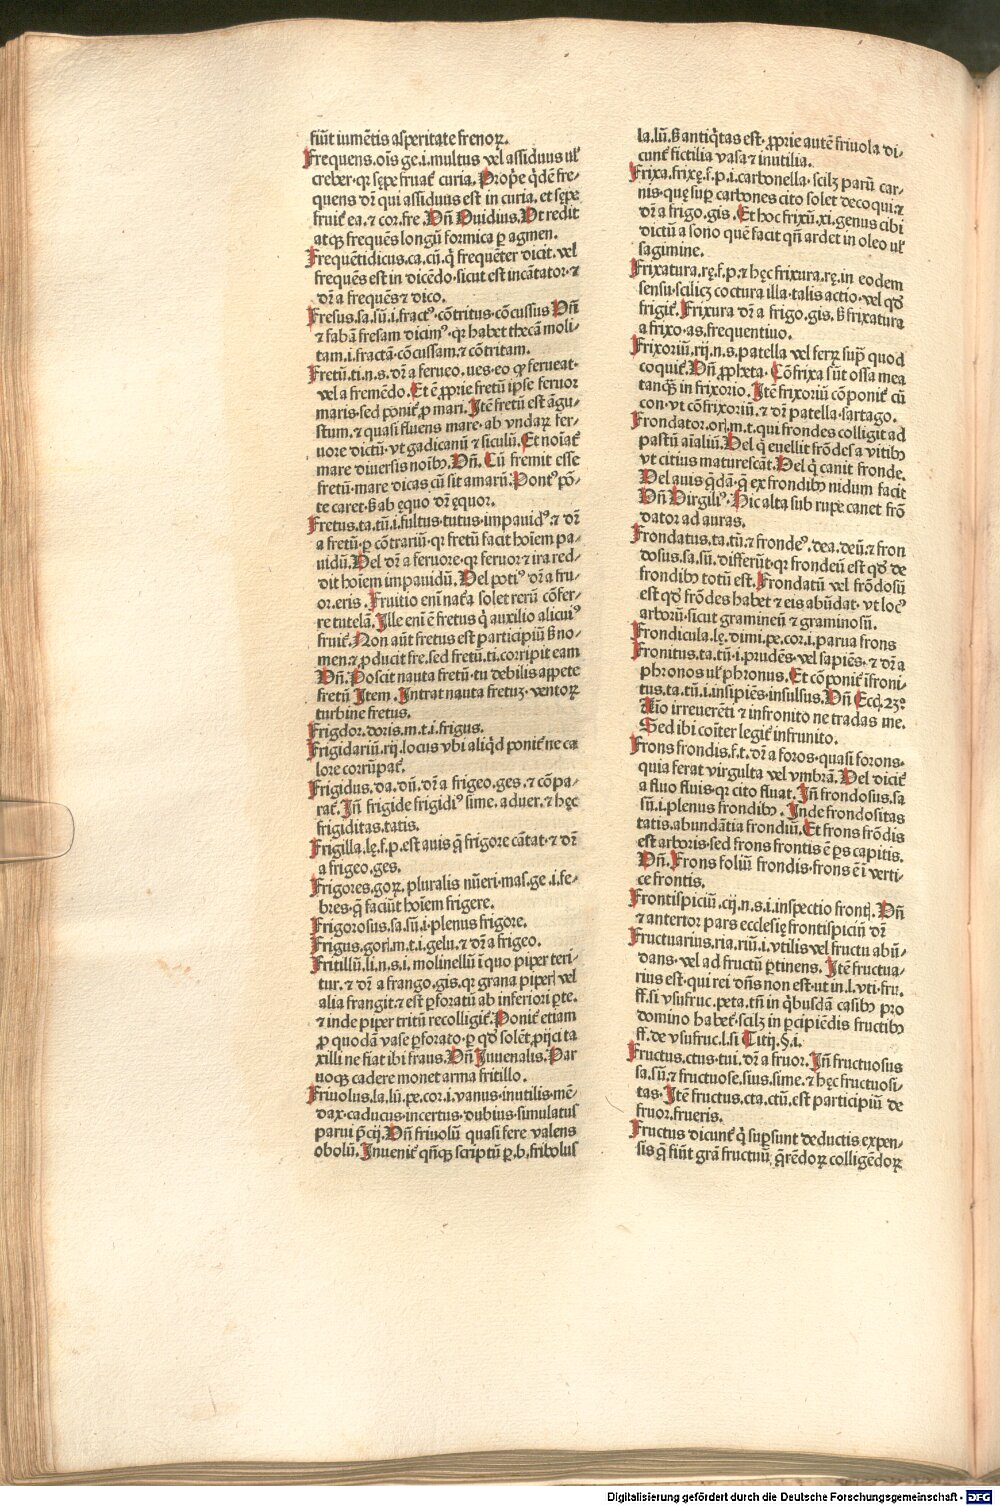 fiūt iumētis asperitate frenoꝝ.
Frequens.oīs ge.i.multus vel assiduus uł
creber·qꝛ sępe fruat̄ curia. Propͥe q̇dē fre⸗
quens dꝛ̄ qui assiduus est in curia. et sępe
fruit̄ ea.⁊ cor.fre Vn̄ Ouidius. Ut redit
atqꝫ frequēs longū formica ꝑ agmen.
Frequētidicus.ca.cū.q̇ frequēter dicit. vel
frequēs est in dicēdo·sicut est incātator·⁊
dꝛ̄ a frequēs ⁊ dico.
Fresus.sa.sū.i.fractꝰ·cōtritus·cōcussus Vn̄
⁊ fabā fresam dicimꝰ·qꝛ habet thecā moli⸗
tam.i.fractā·cōcussam.⁊ cōtritam.
Fretū.ti.n.s.dꝛ̄ a ferueo.ues·eo ꝙ ferueat·
vel a fremēdo. Et ē ꝓprie fretū ipse feruor
maris·sed ponit̄ ꝓ mari. Itē fretū est āgu⸗
stum.⁊ quasi fluens mare·ab vndaꝝ fer⸗
uore dictū·vt gadicanū ⁊ siculū. Et noīat̄
mare diuersis noībꝰ. Vn̄. Cū fremit esse
fretū·mare dicas cū sit amarū. Pontꝰ pō⸗
te caret·ꝯ ab ęquo dꝛ̄ ęquor.
Fretus.ta.tū.i.fultus·tutus·impauidꝰ.⁊ dꝛ̄
a fretū·ꝑ cōtrariū·qꝛ fretū facit hoīem pa⸗
uidū. Vel dꝛ̄ a feruore·qꝛ feruor ⁊ ira red⸗
dit hoīem impauidū. Vel potiꝰ dꝛ̄ a fru⸗
or.eris. Fruitio enī nat̄a solet rerū cōfer⸗
re tutelā. Ille enī ē fretus q̇ auxilio alicuiꝰ
fruit̄. Non aūt fretus est participiū ꝯ no⸗
men.⁊ ꝓducit fre.sed fretū.ti.corripit eam
Vn̄. Poscit nauta fretū·tu debilis appete
fretū Item. Intrat nauta fretuꝫ·ventoꝝ
turbine fretus.
Frigdor.doris.m.t.i.frigus.
Frigidariū.rij.locus vbi aliq̇d ponit̄ ne ca
lore corrūpat̄.
Frigidus.da.dū.dꝛ̄ a frigeo.ges.⁊ cōpa⸗
rat̄. Jn̄ frigide frigidiꝰ sime.aduer.⁊ hęc
frigiditas.tatis.
Frigilla.lę.f.p.est auis q̄ frigore cātat·⁊ dꝛ̄
a frigeo.ges.
Frigores.goꝝ.pluralis nūeri·mas.ge.i.fe⸗
bres·q̄ faciūt hoīem frigere.
Frigorosus.sa.sū.i·plenus frigore.
Frigus.goꝛꝭ.m.t.i.gelu.⁊ dꝛ̄ a frigeo.
Fritillū.li.n.s.i.molinellū ī quo piper teri⸗
tur.⁊ dꝛ̄ a frango.gis.qꝛ grana piperꝭ vel
alia frangit.⁊ est ꝑforatū ab inferiori ꝑte.
⁊ inde piper tritū recolligit̄. Ponit̄ etiam
ꝓ quodā vase ꝑforato·ꝑ qd̓ solēt ꝓijci ta
xilli ne fiat ibi fraus. Vn̄ Juuenalis. Par
uoqꝫ cadere monet arma fritillo.
Friuolus.la.lū.pe.cor.i.vanus·inutilis·mē⸗
dax·caducus·incertus·dubius·simulatus
parui p̄cij. Vn̄ friuolū quasi fere valens
obolū. Inuenit̄ qn̄qꝫ scriptū ꝑ.b.fribolus
la.lū. ꝯ antiq̇tas est·ꝓprie autē friuola di⸗
cunt̄ fictilia vasa ⁊ inutilia.
Frixa.frixę.f·p.i.carbonella·scilꝫ parū car⸗
nis·quę suꝑ carbones cito solet decoqui.⁊
dꝛ̄ a frigo.gis. Et hoc frixū.xi.genus cibi
dictū a sono quē facit qn̄ ardet in oleo uł
sagimine.
Frixatura.rę.f.p.⁊ hęc frixura.rę.in eodem
sensu·scilicꝫ coctura illa·talis actio·vel qd̓
frigit̄. Frixura dꝛ̄ a frigo.gis. ꝯ frixatura
a frixo·as.frequentiuo.
Frixoriū.rij.n.s.patella vel ferꝝ suꝑ quod
coquit̄. Vn̄ ꝓpheta. Cōfrixa sūt ossa mea
tanqꝫ in frixorio. Itē frixoriū cōponit̄ cū
con·vt cōfrixoriū.⁊ dꝛ̄ patella·sartago.
Frondator.oꝛꝭ.m.t.qui frondes colligit ad
pastū aīaliū. Vel q̇ euellit frōdes a vitibꝰ
vt citius maturescāt. Vel q̇ canit fronde.
Vel auis q̄dā·q̄ ex frondibꝰ nidum facit
Vn̄ Virgiliꝰ. Hic alta sub rupe canet frō
dator ad auras.
Frondatus.ta.tū.⁊ frondeꝰ.dea.deū.⁊ fron
dosus.sa.sū.differūt·qꝛ frondeū est qd̓ de
frondibꝰ totū est. Frondatū vel frōdosū
est qd̓ frōdes habet ⁊ eis abūdat·vt locꝰ
arborū·sicut gramineū ⁊ graminosū.
Frondicula.lę.dimi.pe.cor.i.parua frons
Fronitus.ta.tū.i.prudēs·vel sapiēs.⁊ dꝛ̄ a
phronos uł phronus. Et cōponit̄ īfroni⸗
tus.ta.tū.i.insipiēs·insulsus. Vn̄ Ecci̇.23°
Aīo irreuerēti ⁊ infronito ne tradas me.
Sed ibi coīter legit̄ infrunito.
Frons frondis.f.t.dꝛ̄ a foros·quasi forons·
quia ferat virgulta vel vmbrā. Vel dicit̄
a fluo fluis·qꝛ cito fluat. Jn̄ frondosus.sa
sū.i.plenus frondibꝰ. Inde frondositas
tatis.abundātia frondiū. Et frons frōdis
est arboris·sed frons frontis ē ꝑs capitis.
Vn̄. Frons foliū frondis·frons ē i verti⸗
ce frontis.
Frontispiciū.cij.n.s.i.inspectio frontꝭ. Vn̄
⁊ anterior pars ecclesię frontispiciū dꝛ̄
Fructuarius.ria.riū.i.vtilis vel fructu abū⸗
dans·vel ad fructū ꝑtinens. Itē fructua⸗
rius est·qui rei dn̄s non est·ut in.l.vti·fru.
ff.si vsufruc.peta.tn̄ in q̇busdā casibꝰ pro
domino habet̄·scilꝫ in ꝑcipiēdis fructibꝰ
ff.de vsufruc.l.si Titij.§.i.
Fructus.ctus.tui.dꝛ̄ a fruor. Jn̄ fructuosus
sa.sū.⁊ fructuose.sius.sime.⁊ hęc fructuosi⸗
tas. Itē fructus.cta.ctū.est participiū de
fruor.frueris.
Fructus dicunt̄ q̇ suꝑsunt deductis expen⸗
sis q̄ fiūt gr̄a fructuū q̄rēdoꝝ colligēdoꝝ
Digitalisierung gefördert durch die Deutsche Forschungsgemeinschaft - DFG